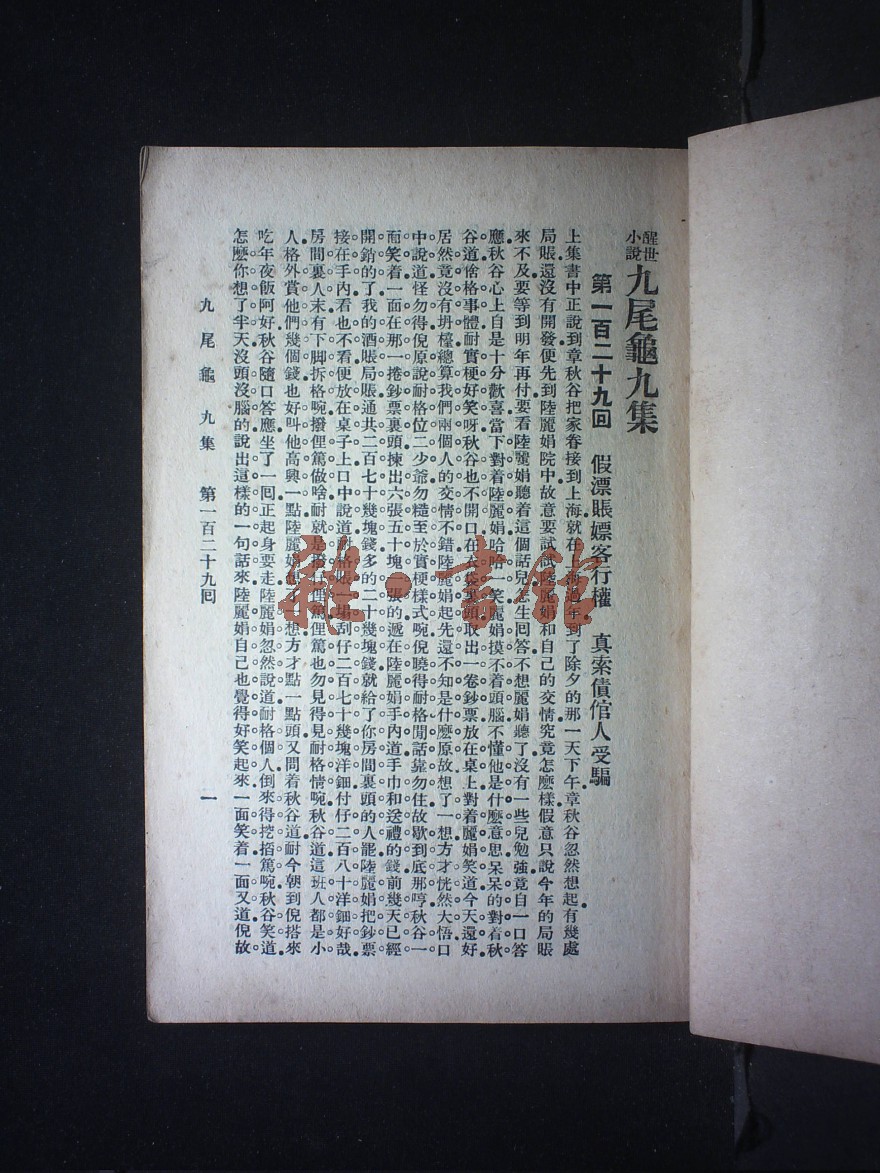 醒世小說 九尾龜九集
第一百二十九回 假漂賬嫖客行權 真索債倌人受騙
上集書中正說到章秋谷把家眷接到上海就在上海過年到了除夕的那一天下午章秋谷忽然想起有幾處
局賬還沒有開發便先到陸麗娟院中故意要試試陸麗娟和自己的交情究竟怎麽樣假意只說今年的局賬
來不及要等到明年再付要看陸麗娟聽着這個話兒怎生回答不想麗娟聽了沒有一些兒勉強竟自一口答
應秋谷心上自是十分歡喜當下對着陸麗娟哈哈一笑麗娟摸不着頭腦不懂他是什麽意思呆呆的對着秋
谷道啥格事體耐實梗好笑呀秋谷也不開口在衣袋裏頭取出一卷鈔票放在桌上對着麗娟笑道今天還好
居然竟沒有坍檯總算我們兩個人的交情不錯陸麗娟起先還不知是什麽原故想了一想方才恍然大悟口
中說道怪勿得倪原說耐格位二少爺勿糙至於實梗樣式啘倪曉得耐格閒話靠勿住故歇到底那哼秋谷一
面笑着一面在那一捲鈔票裏頭揀出六張五十塊一張的遞在陸麗娟手內道手巾和送禮的錢前幾天已經
開銷的了我的酒賬局賬通共二百七十幾塊錢多的二十幾塊錢就給了你房間裏頭的人罷陸麗娟把鈔票
接在手內看也不看便放在桌子上口中說道耐格賬一塌刮仔二百七十幾塊洋鈿付仔二百八十洋鈿好哉
房間裏人末有下脚拆格啘撥俚篤做啥耐就是撥仔俚篤俚篤也勿見得見耐格情啘秋谷道這班人都是小
人格外賞他們幾個錢也好叫他高興一點陸麗娟想了一想方才點一點頭又問着秋谷道耐今朝到倪搭來
吃年夜飯阿好秋谷隨口答應坐了一囘正起身要走陸麗娟忽然說道耐格個人倒來得挖搯篤啘秋谷笑道
怎麽你想了半天沒頭沒腦的說出這樣的一句話來陸麗娟自己也覺得好笑起來一面笑着一面又道倪故
九尾龜 九集 第一百二十九回 一
雅·書館